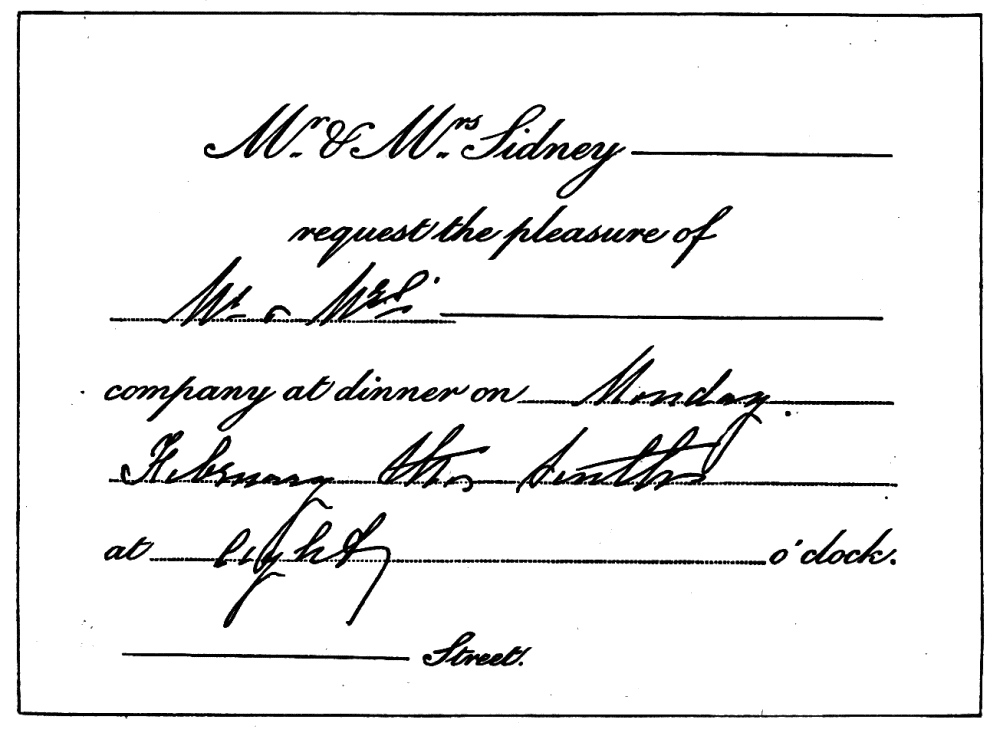 Mr. & Mrs. Sidney
request the pleasure of
Mr & Mrs.
company at dinner on Monday.
February the tenth
at eight o'clock.
Street.